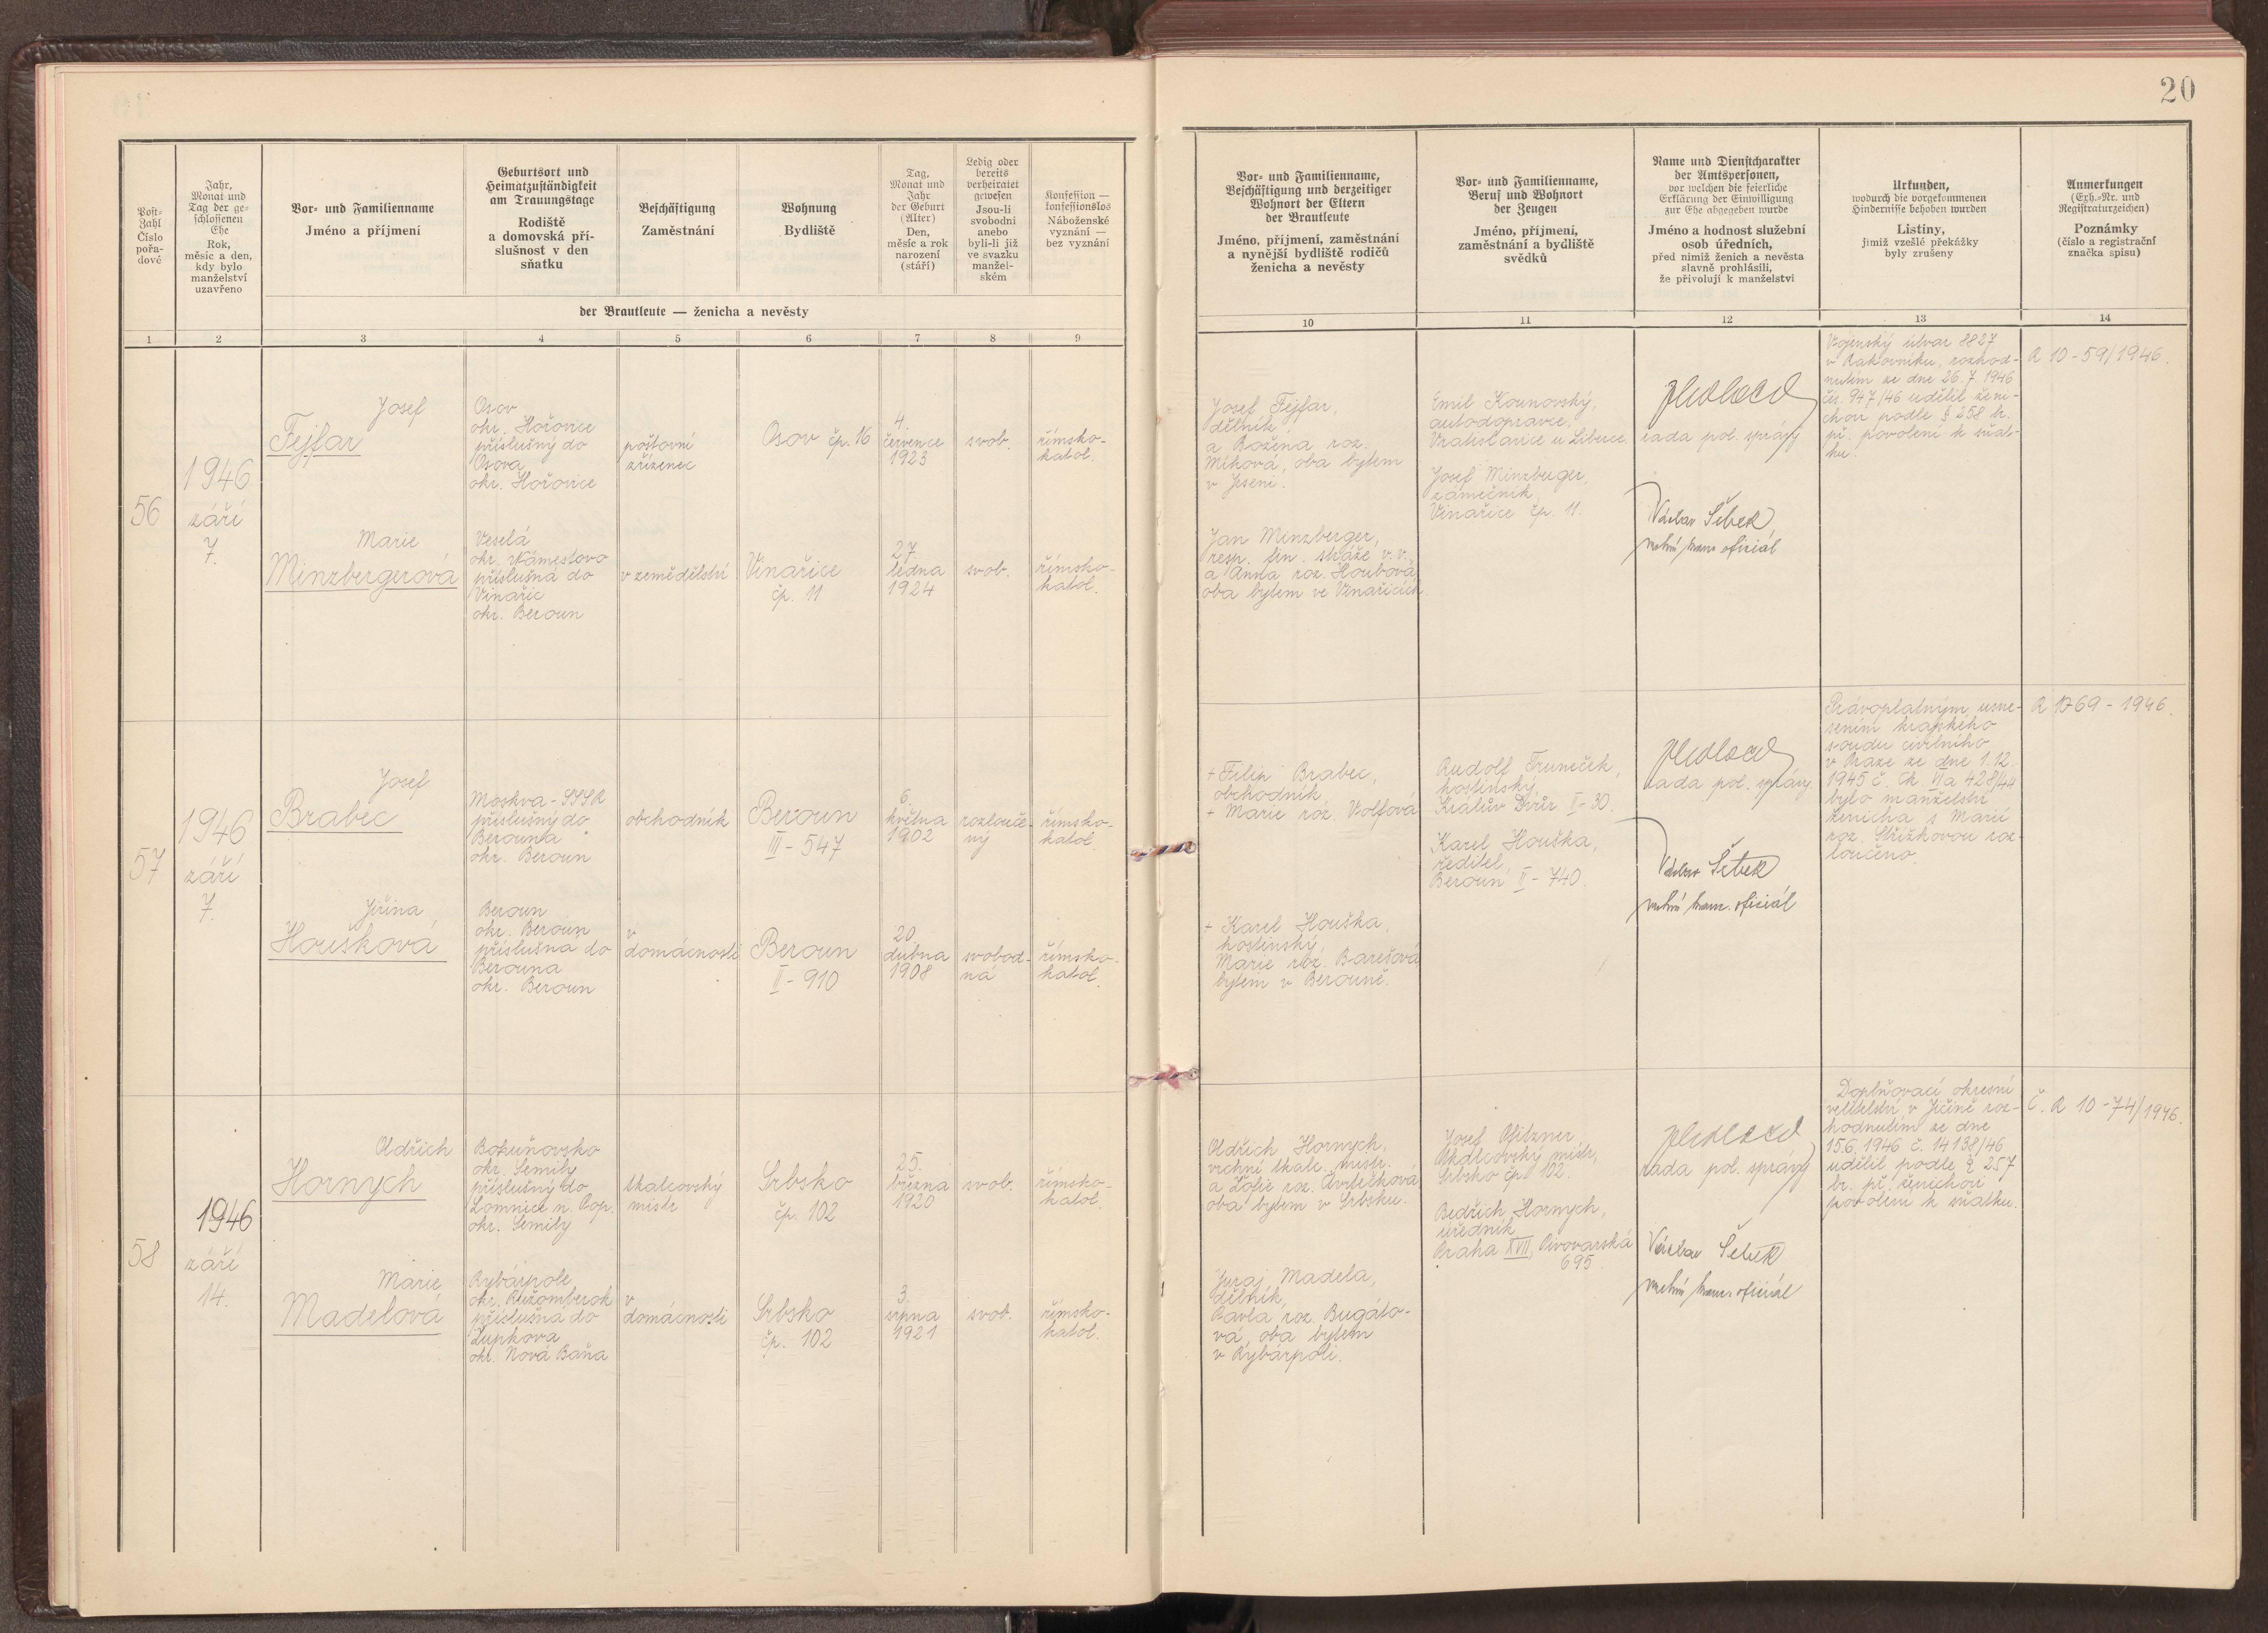 20
Post-
Zahl
Číslo
pořa-
dové
Jahr,
Monat und
Tag der ge-
schlossenen
Ehe
Rok,
měsíc a den,
kdy bylo
manželství
uzavřeno
Vor- und Familienname
Jméno a příjmení
Geburtsort und
Heimatzuständigkeit
am Trauungstage
Rodiště
a domovská pří-
slušnost v den
sňatku
Beschäftigung
Zaměstnání
Wohnung
Bydliště
Tag,
Monat und
Jahr
der Geburt
(Alter)
Den,
měsíc a rok
narození
(stáří)
Ledig oder
bereits
verheiratet
gewesen
Jsou-li
svobodni
anebo
byli-li již
ve svazku
manžel-
ském
Konfession —
konfessionslos
Náboženské
vyznání —
bez vyznání
der Brautleute — ženicha a nevěsty
Vor- und Familienname,
Beschäftigung und derzeitiger
Wohnort der Eltern
der Brautleute
Jméno, příjmení, zaměstnání
a nynější bydliště rodičů
ženicha a nevěsty
Vor- und Familienname,
Beruf und Wohnort
der Zeugen
Jméno, příjmení,
zaměstnání a bydliště
svědků
Name und Dienstcharakter
der Amtspersonen,
vor welchen die feierliche
Erklärung der Einwilligung
zur Ehe abgegeben wurde
Jméno a hodnost služební
osob úředních,
před nimiž ženich a nevěsta
slavně prohlásili,
že přivolují k manželství
Urkunden,
wodurch die vorgekommenen
Hindernisse behoben wurden
Listiny,
jimiž vzešlé překážky
byly zrušeny
Anmerkungen
(Exh.-Nr. und
Registraturzeichen)
Poznámky
(číslo a registrační
značka spisu)
1 2 3 4 5 6 7 8 9 10 11 12 13 14
56
1946
září
7.
Josef
Fejfar
Osov
okr. Hořovice
příslušný do
Osova
okr. Hořovice
poštovní
zřízenec
Osov čp. 16
4.
července
1923
svob.
římsko-
katol.
Marie
Minzbergerová
Veselá
okr. Námestovo
příslušná do
Vinařic
okr. Beroun
v zemědělství
Vinařice
čp. 11
27.
ledna
1924
svob.
římsko-
katol.
Josef Fejfar,
dělník,
a Božena roz.
Míková, oba bytem
v Jeseni.
Jan Minzberger,
resp. fin. stráže v.v.,
a Anna roz. Houbová,
oba bytem ve Vinařicích.
Emil Kounovský,
autodopravce,
Vratislavice u Liberce.
Josef Minzberger,
zámečník,
Vinařice čp. 11.
rada pol. správy
Václav Šebek
vrchní kanc. oficiál
Vojenský útvar 8827
v Rakovníku, rozhod-
nutím ze dne 26.7.1946
čís. 947/46 udělil ženi-
chovi podle § 258 br.
př. povolení k sňat-
ku.
R 10-59/1946.
57
1946
září
7.
Josef
Brabec
Moskva-SSSR
příslušný do
Berouna
okr. Beroun
obchodník
Beroun
III-547
6.
května
1902
rozlouče-
ný
římsko-
katol.
Jiřina
Houšková
Beroun
okr. Beroun
příslušná do
Berouna
okr. Beroun
v
domácnosti
Beroun
II-910
20.
dubna
1908
svobod-
ná
římsko-
katol.
+ Filip Brabec,
obchodník
+ Marie roz. Wolfová
+ Karel Houška,
hostinský,
Marie roz. Barešová
bytem v Berouně.
Rudolf Truneček,
hostinský,
Králův Dvůr II-30.
Karel Houška,
ředitel,
Beroun II-740.
rada pol. správy
Václav Šebek
vrchní kanc. oficiál
Právoplatným usne-
sením krajského
soudu civilního
v Praze ze dne 1.12.
1945 č. Ck VIa 428/44
bylo manželství
ženicha s Marií
roz. Střížkovou roz-
loučeno.
58
1946
září
14.
Oldřich
Hornych
okr. Semily
příslušný do
Lomnice n. Pop.
okr. Semily
skalcovský
mistr
Srbsko
čp. 102
25.
března
1920
svob.
římsko-
katol.
Marie
Madelová
Rybárpole
okr. Ružomberok
příslušná do
Župkova
okr. Nová Baňa
v
domácnosti
Srbsko
čp. 102
3.
srpna
1921
svob.
římsko-
katol.
Oldřich Hornych,
vrchní tkalc. mistr.
a Žofie roz. Cvrčková
oba bytem v Srbsku.
Juraj Madela,
dělník,
Pavla roz. Bugáto-
vá, oba bytem
v Rybárpoli.
Josef Pfitzner,
tkalcovský mistr,
Srbsko čp. 102.
Bedřich Hornych,
úředník,
Praha XVII, Pivovarská
695.
rada pol. správy
Václav Šebek
vrchní kanc. oficiál
Doplňovací okresní
velitelství v Jičíně roz-
hodnutím ze dne
15.6.1946 č. 14138/46
udělil podle § 257
br. př. ženichovi
povolení k sňatku.
Č. R 10-74/1946.